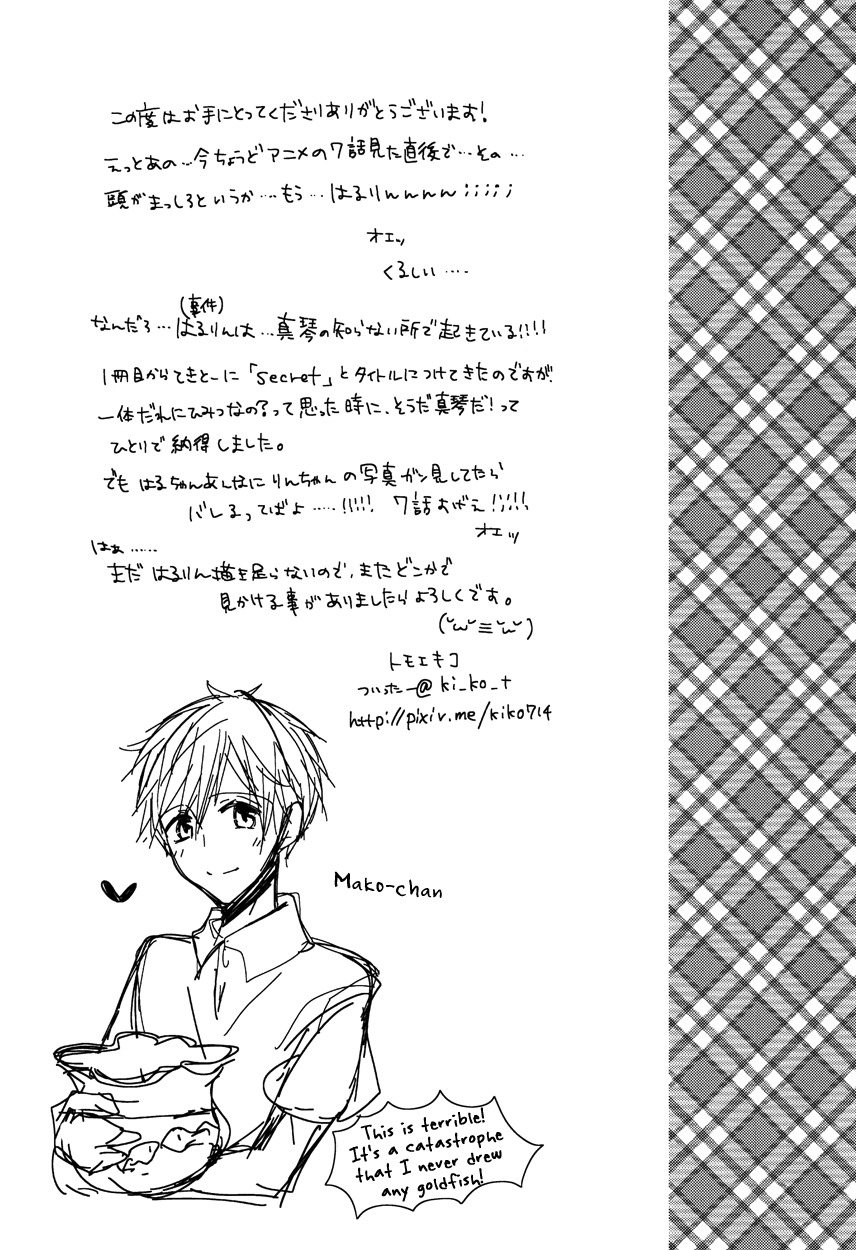 この度はお手にとってくださりありがとうございます!
えっとあの…今ちょうどアニメの7話見た直後で…その…
頭がまっしろというか…もう…はるりんんんん;;;;;
オエッ
くるしい….
(事件)
なんだろ…はるりんは…真琴の知らない所で起きている!!!!
1冊目からてきとーに「secret」とタイトルにつけてきたのですが、
一体だれにひみつなの?って思った時に、そうだ真琴だ!って
ひとりで納得しました。
でも はるちゃんあんなに りんちゃん の写真ガン見してたら
バレるってばよ……!!!!! 7話おぼえ!!!!!
オエッ
はぁ……
まだ はるりん描き足らないので、またどこかで
見かける事がありましたらよろしくです。
(˘ω˘≡˘ω˘)
トモエキコ
ついったー@ki_ko_t
http://pixiv.me/kiko714
Mako-chan
This is terrible!
It's a catastrophe
that I never drew
any goldfish!